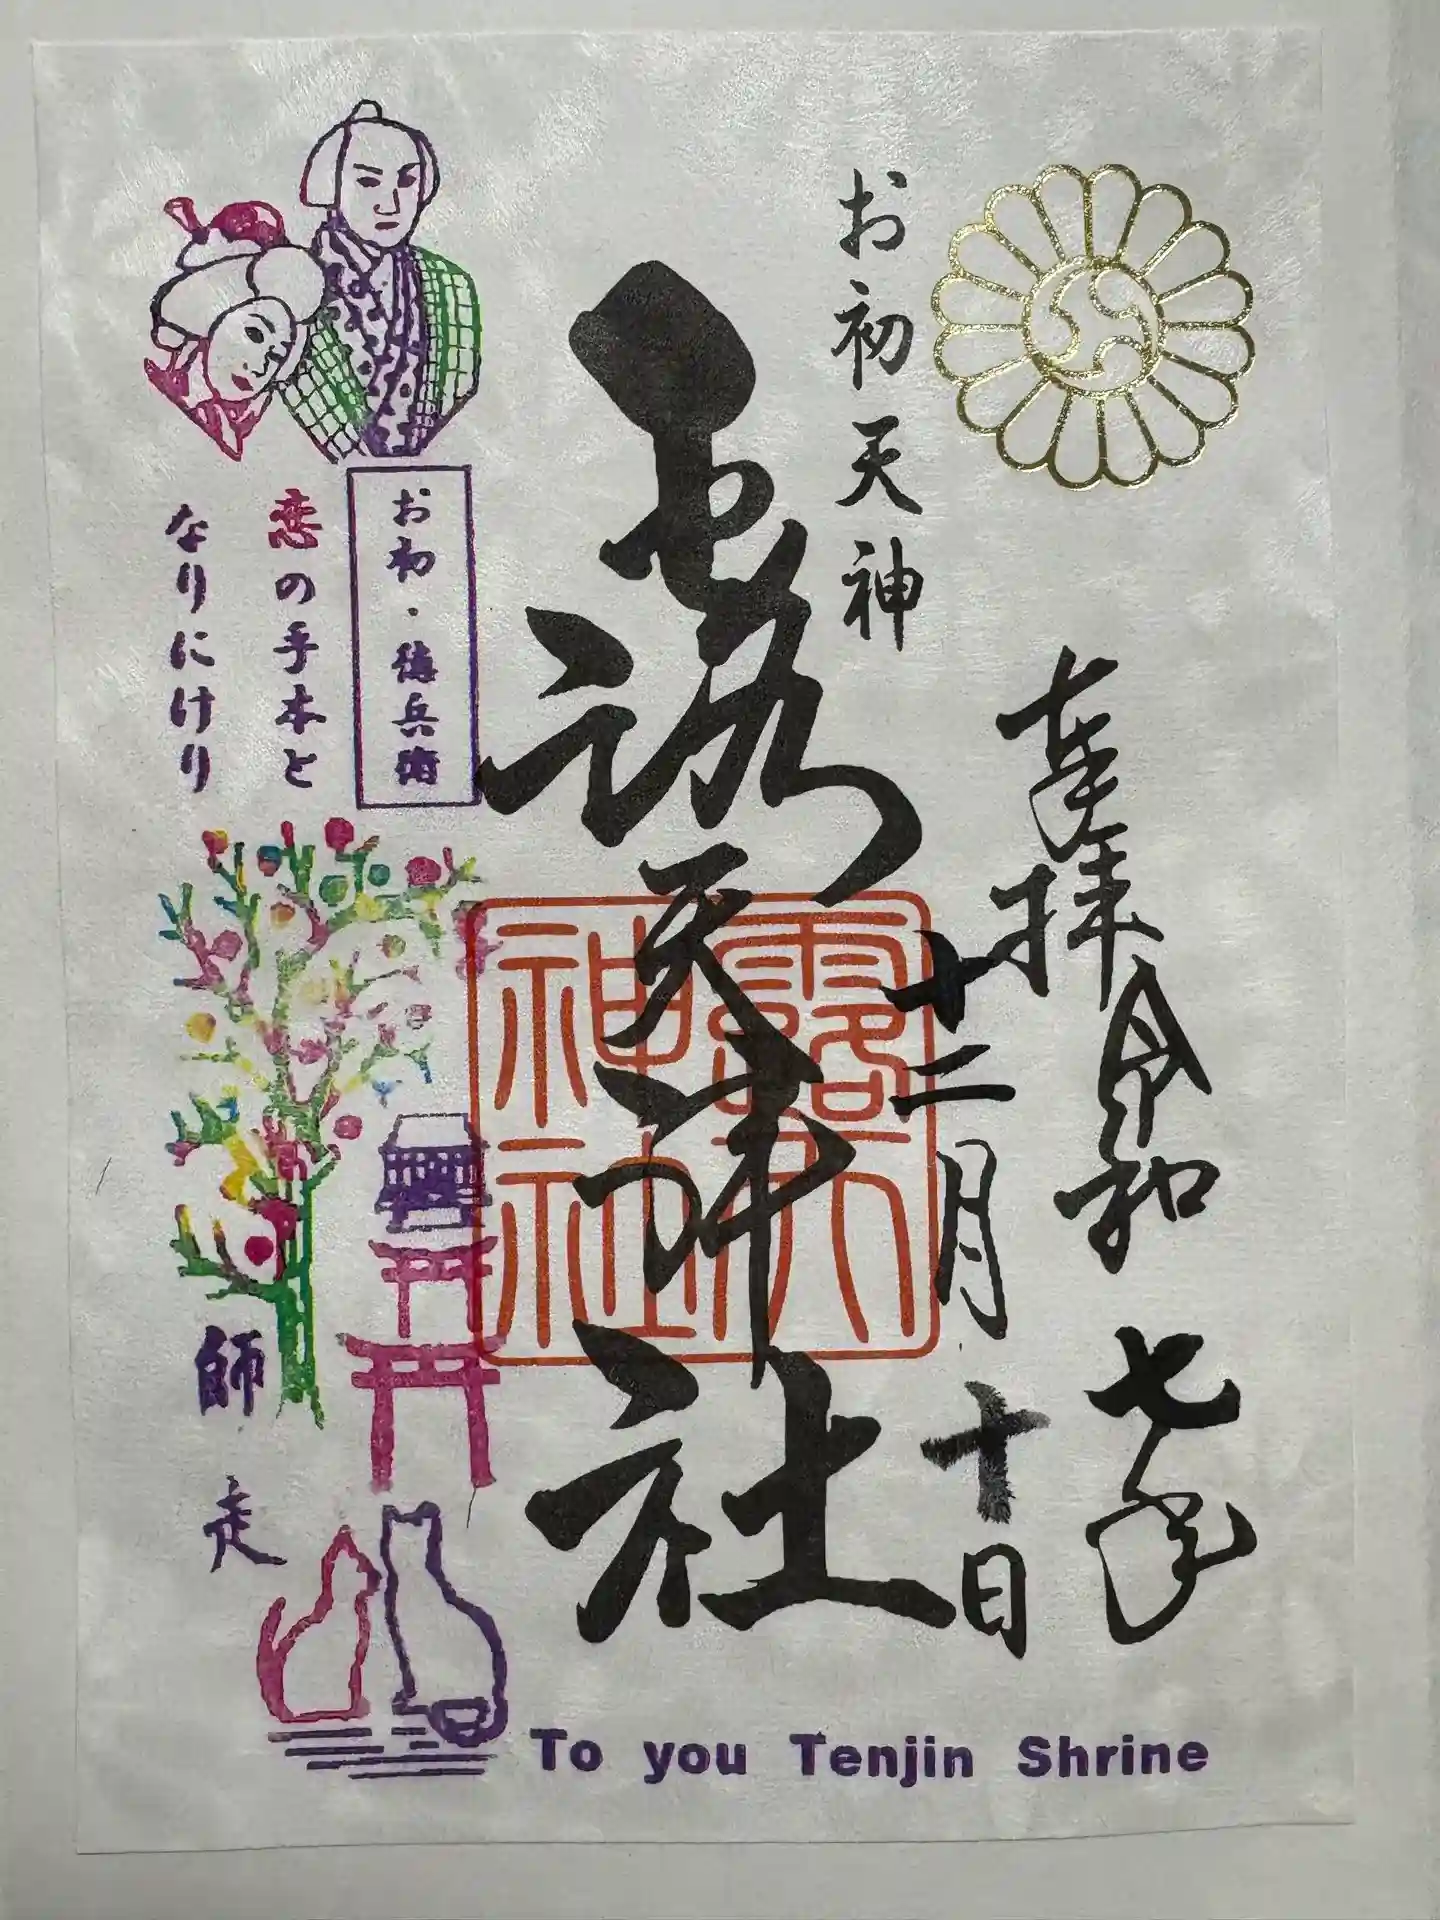 奉拝 令和七年
十二月十日
お初天神
露天神社
露天神社
お初・徳兵衛
恋の手本と
なりにけり
師走
To you Tenjin Shrine